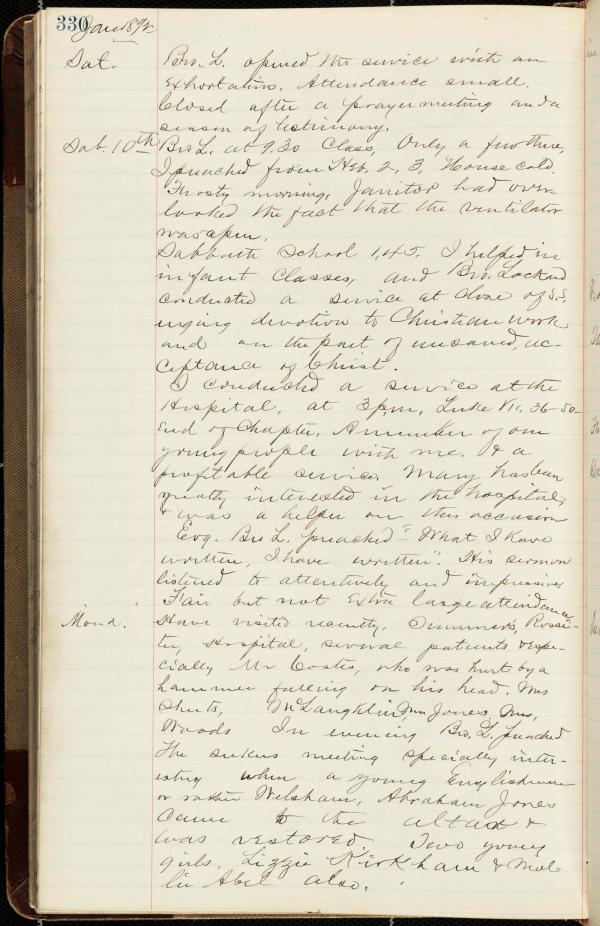 330 Jan 1892
Sat. Bro. L. opened the service with an
Exhortation. Attendance small.
Closed after a prayermeeting and a
season of testimony.
Sab. 10th Bro L. at 9.30 Class, Only a few there,
I preached from Heb. 2, 3, House cold.
Frosty morning, Janitor had over-
looked the fact that the ventilator
was open.
Sabbath School 1,45. I helped in
infant Classes, and Bro. Lockard
conducted a service at close of S.S.,
urging devotion to Christian work
and on the part of unsaved, ac-
ceptance of Christ.
I conducted a service at the
Hospital, at 3 p.m, Luke VII, 36-50-
End of Chapter, A number of our
young people with me. & a
profitable service. Mary has been
greatly interested in the hospital,
& was a helper on this occasion
Evg. Bro L. preached "What I have
written, I have written". His sermon
listened to attentively and impressive
Fair but not Extra large attendance
Mond. Have visited recently. Summers, Rossi-
ter, Hospital, several patients & espe-
cially Mr Coates, who was hurt by a
hammer falling on his head. Mrs
Shuts, McLaughlin, Mrs Jones, Mrs,
Woods In evening Bro. L. preached
The seekers meeting specially inter-
esting when a young Englishman
or rather Welshman, Abraham Jones
Came to the altar &
was restored. Two young
girls, Lizzie Kirkham & Mol-
lie Abel also.